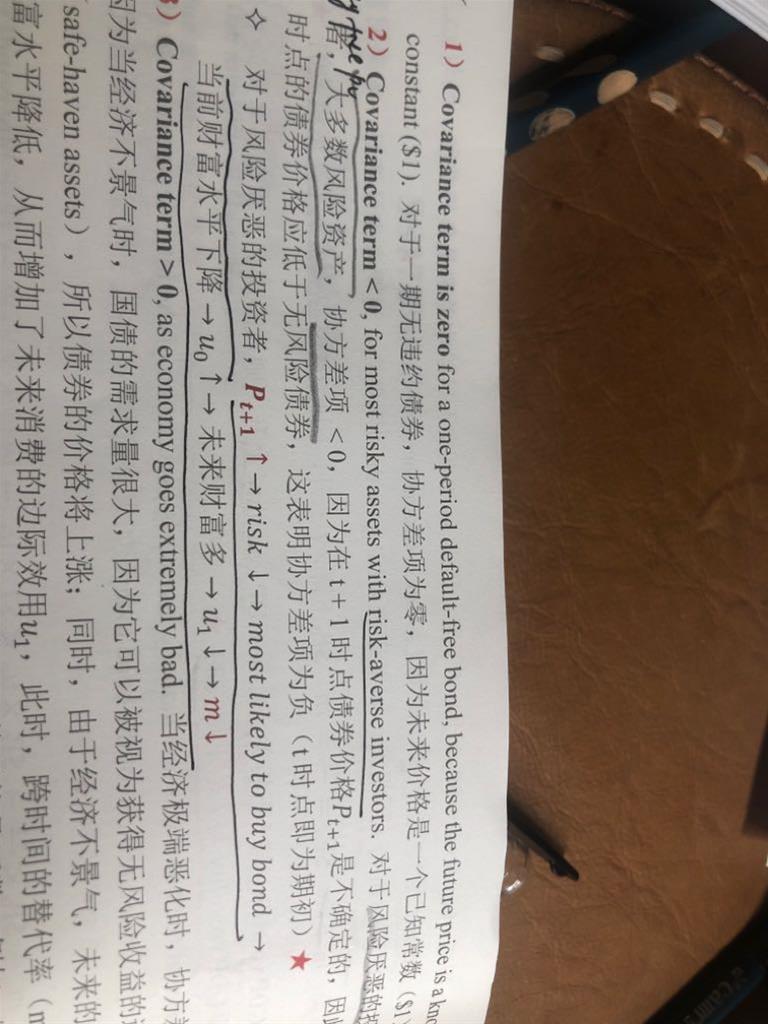 1) Covariance term is zero for a one-period default-free bond, because the future price is a
constant ($1). 对于一期无违约债券, 协方差项为零, 因为未来价格是一个已知常数 ($1)
2) Covariance term < 0, for most risky assets with risk-averse investors. 对于风险厌恶的
者, 大多数风险资产, 协方差项 < 0, 因为在 t + 1 时点债券价格P_{t+1}是不确定的,
时点的债券价格应低于无风险债券, 这表明协方差项为负 (t 时点即为期初) ★
✧ 对于风险厌恶的投资者, P_{t+1} ↑→ risk ↓→ most likely to buy bond →
当前财富水平下降 → u_0 ↑→ 未来财富多 → u_1 ↓→ m ↓
3) Covariance term > 0, as economy goes extremely bad. 当经济极端恶化时, 协方
因为当经济不景气时, 国债的需求量很大, 因为它可以被视为获得无风险收益的
safe-haven assets), 所以债券的价格将上涨; 同时, 由于经济不景气, 未来的
富水平降低, 从而增加了未来消费的边际效用u_1, 此时, 跨时间的替代率 (m